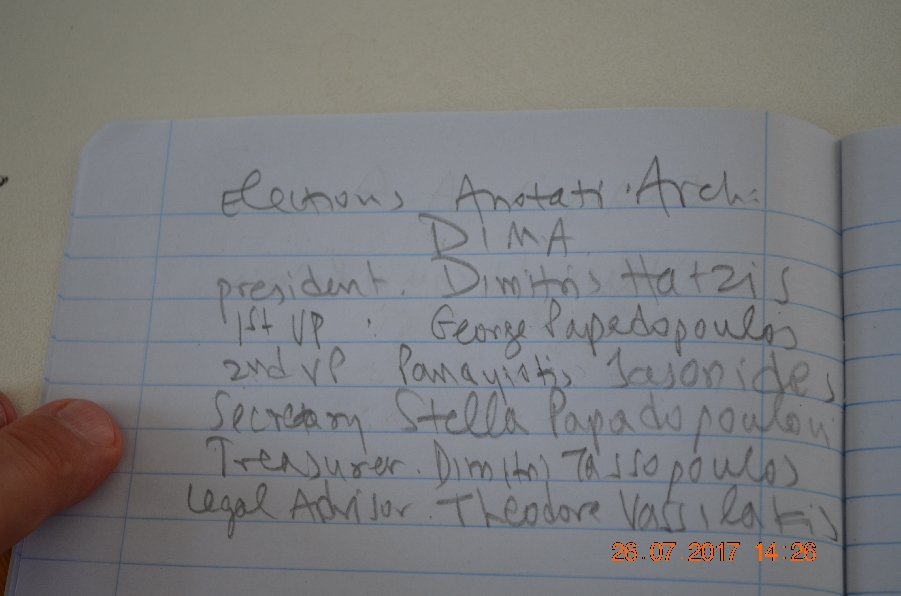 Elections Anotati Arch:
DIMA
president. Dimitris Hatzis
1st VP : George Papadopoulos
2nd VP Panayiotis Iasonides
Secretary Stella Papadopoulou
Treasurer. Dimitris Tassopoulos
Legal Advisor. Theodore Vassilakis
26.07 2017 14:26